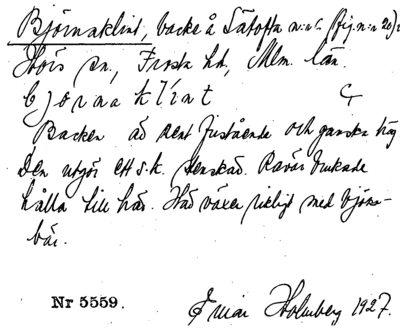 Björnaklint, backe å Sätofta n:o 5 (fig. n:o 20) i
Höörs sn., Frosta hd, Mlm. län.
bjørnaklint
Backen är rent fristående och ganska hög
Den utgör ett s.k. Renskad. Rävar brukade
hålla till här. Här växer rikligt med björn-
bär.
Nr 5559. Einar Holmberg 1927.